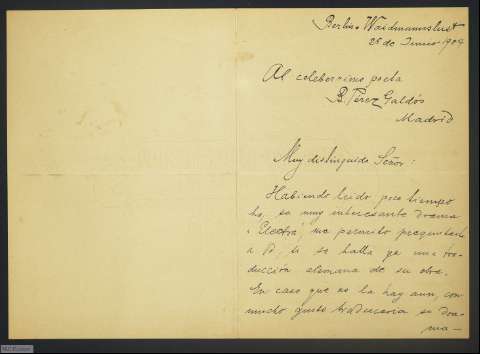 Berlin - Waidmannslust
25 de Junio 1904
Al celeberrimo poeta
B. Pérez Galdós
Madrid
Muy distinguido Señor:
Habiendo leido, poco tiempo
ha, su muy interesante drama
"Electra", me permito preguntarle
a Vd. si se halla ya una tra-
ducción alemana de su obra.
En caso que no la hay aun, con
mucho gusto traduciria su dra-
ma-